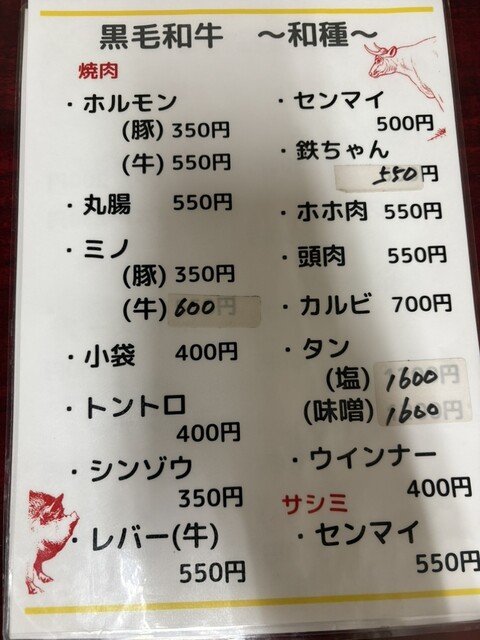 黒毛和牛 ～和種～
焼肉
・ホルモン
(豚) 350円
(牛) 550円
・丸腸 550円
・ミノ
(豚) 350円
(牛) 600
・小袋 400円
・トントロ
400円
・シンゾウ
350円
・レバー(牛)
550円
・センマイ
500円
・鉄ちゃん
550円
・ホホ肉 550円
・頭肉 550円
・カルビ 700円
・タン
(塩) 1600円
(味噌) 1600円
・ウインナー
400円
サシミ
・センマイ
550円